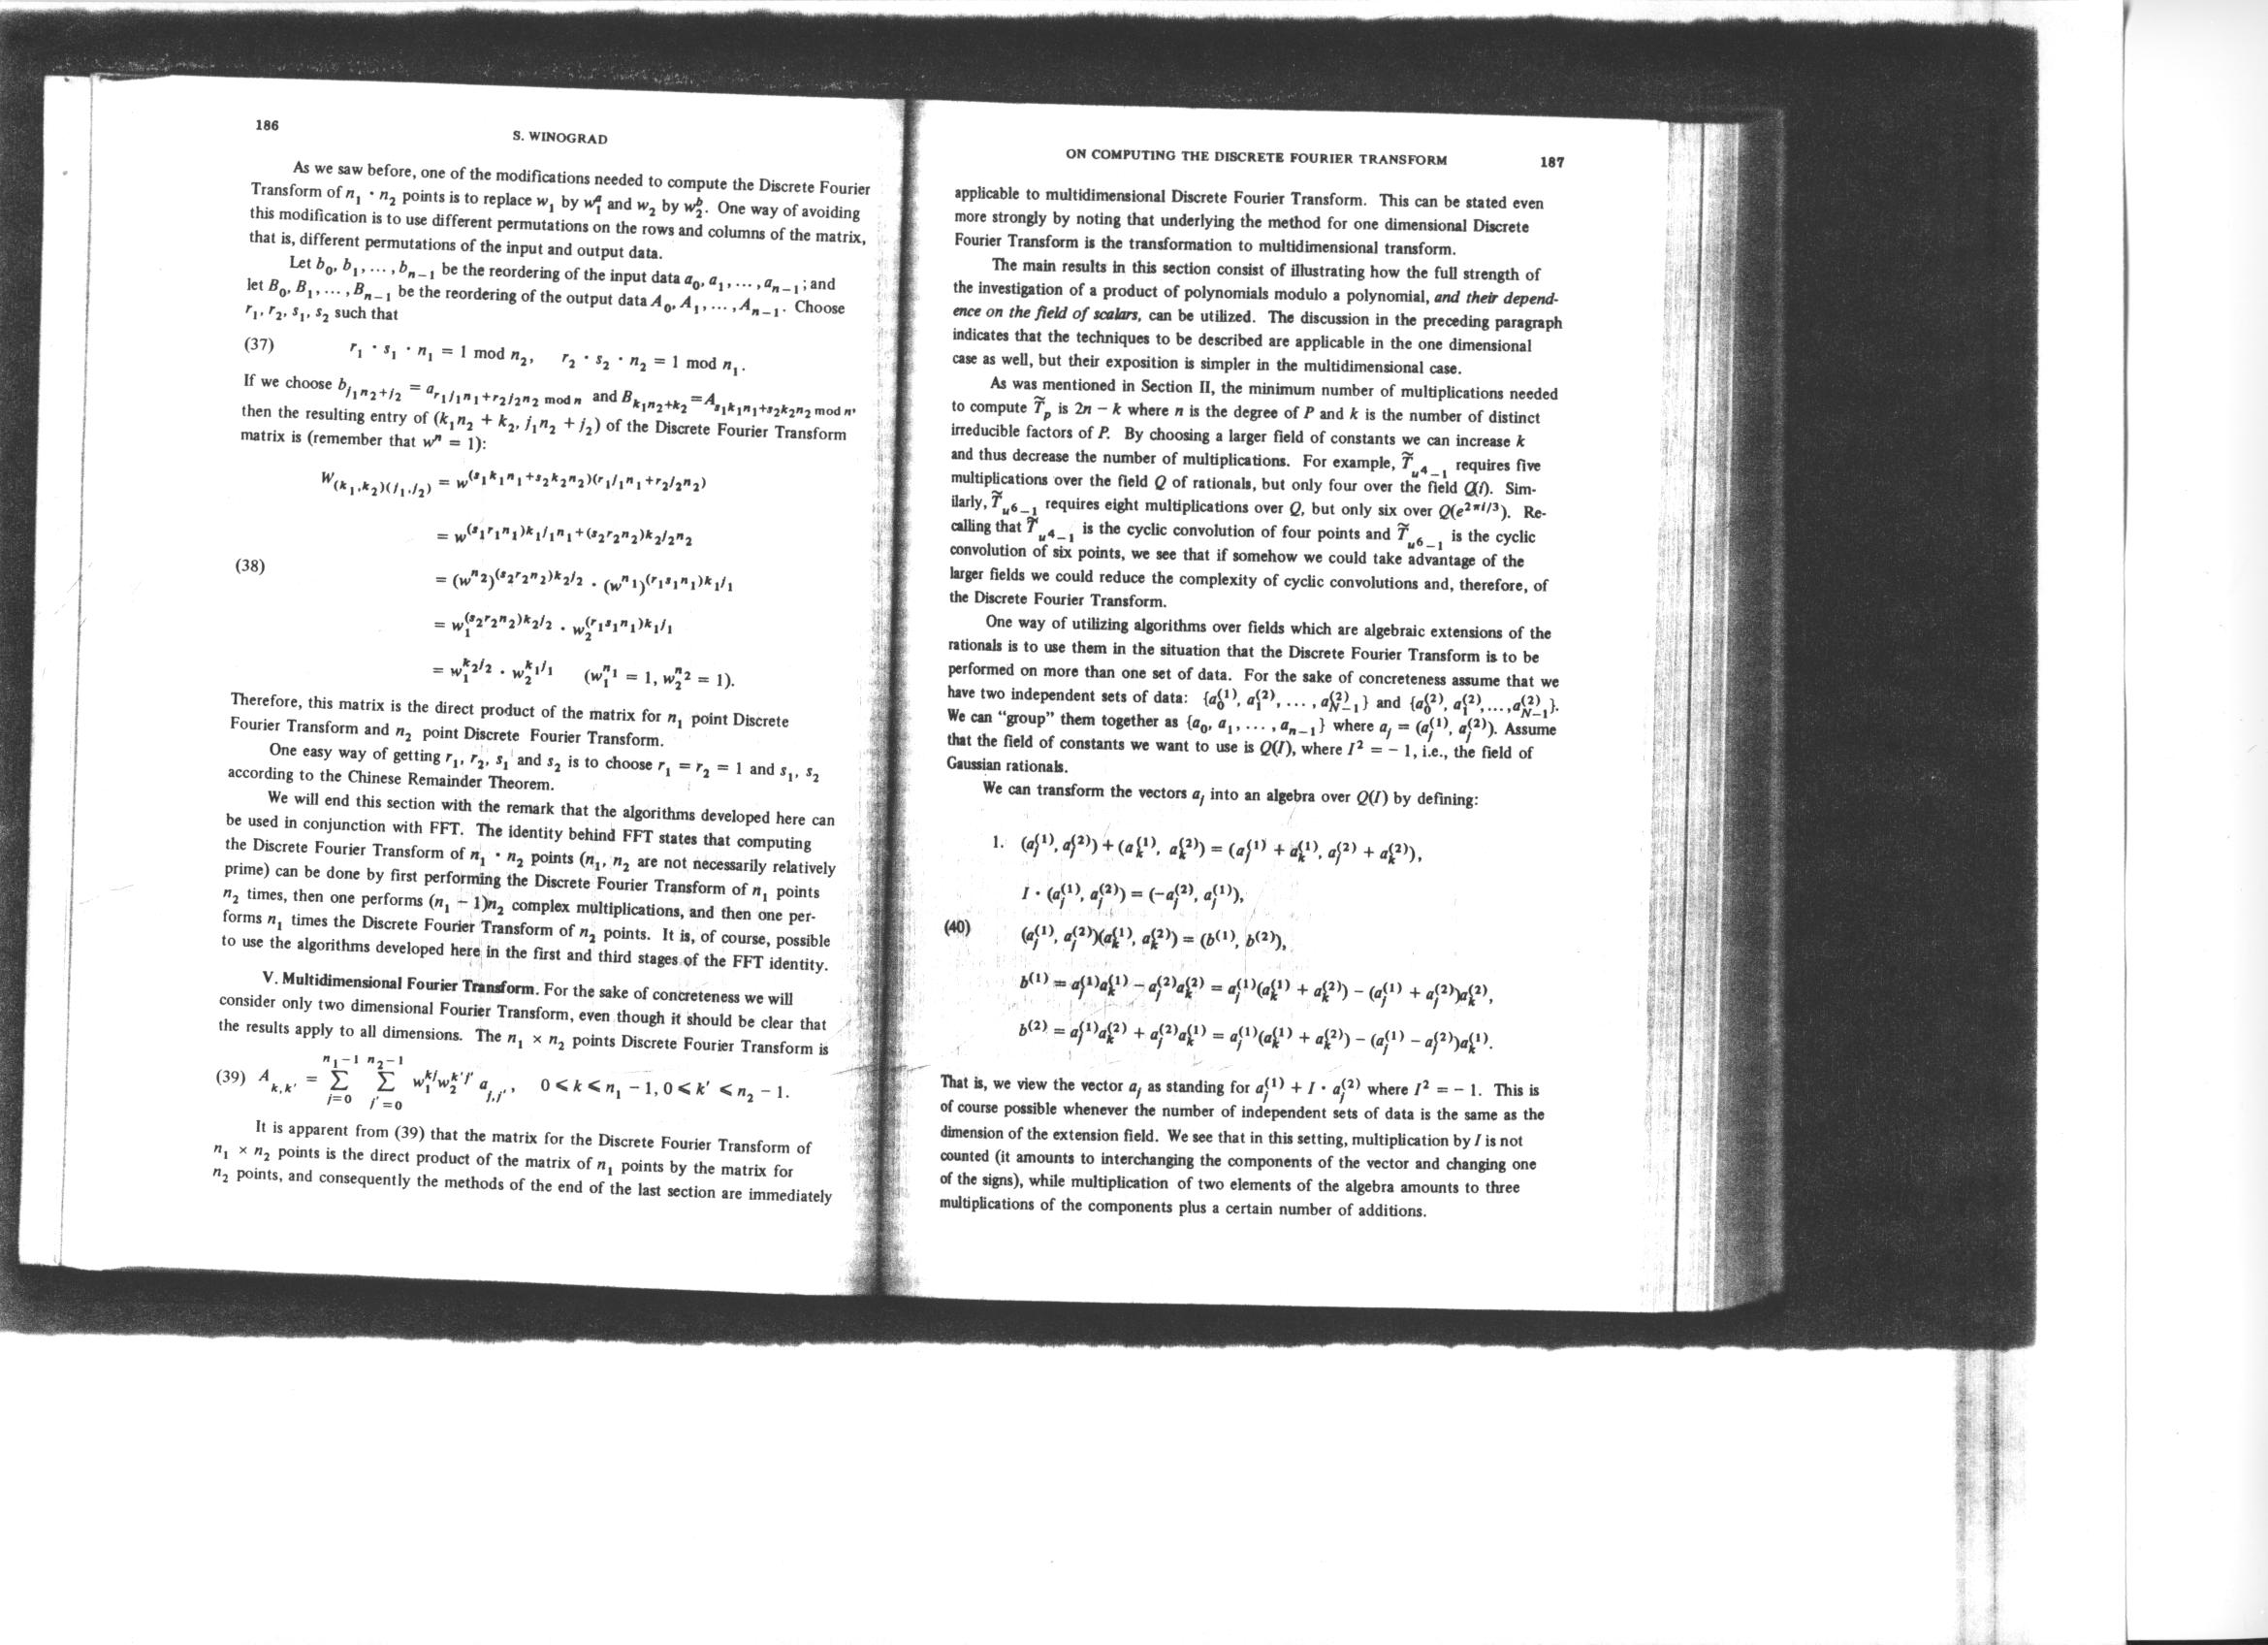 186
S. WINOGRAD
As we saw before, one of the modifications needed to compute the Discrete Fourier
Transform of n₁ · n₂ points is to replace w₁ by w₁ᵃ and w₂ by w₂ᵇ. One way of avoiding
this modification is to use different permutations on the rows and columns of the matrix,
that is, different permutations of the input and output data.
Let b₀, b₁, ... , bₙ₋₁ be the reordering of the input data a₀, a₁, ... , aₙ₋₁; and
let B₀, B₁, ... , Bₙ₋₁ be the reordering of the output data A₀, A₁, ... , Aₙ₋₁. Choose
r₁, r₂, s₁, s₂ such that
(37) r₁ · s₁ · n₁ = 1 mod n₂, r₂ · s₂ · n₂ = 1 mod n₁.
If we choose b_{j₁n₂+j₂} = a_{r₁j₁n₁+r₂j₂n₂ mod n} and B_{k₁n₂+k₂} = A_{s₁k₁n₁+s₂k₂n₂ mod n},
then the resulting entry of (k₁n₂ + k₂, j₁n₂ + j₂) of the Discrete Fourier Transform
matrix is (remember that wⁿ = 1):
W_{(k₁,k₂)(j₁,j₂)} = w^{(s₁k₁n₁+s₂k₂n₂)(r₁j₁n₁+r₂j₂n₂)}
= w^{(s₁r₁n₁)k₁j₁n₁+(s₂r₂n₂)k₂j₂n₂}
(38) = (w^{n₂})^{(s₂r₂n₂)k₂j₂} · (w^{n₁})^{(r₁s₁n₁)k₁j₁}
= w₁^{(s₂r₂n₂)k₂j₂} · w₂^{(r₁s₁n₁)k₁j₁}
= w₁^{k₂j₂} · w₂^{k₁j₁} (w₁^{n₁} = 1, w₂^{n₂} = 1).
Therefore, this matrix is the direct product of the matrix for n₁ point Discrete
Fourier Transform and n₂ point Discrete Fourier Transform.
One easy way of getting r₁, r₂, s₁ and s₂ is to choose r₁ = r₂ = 1 and s₁, s₂
according to the Chinese Remainder Theorem.
We will end this section with the remark that the algorithms developed here can
be used in conjunction with FFT. The identity behind FFT states that computing
the Discrete Fourier Transform of n₁ · n₂ points (n₁, n₂ are not necessarily relatively
prime) can be done by first performing the Discrete Fourier Transform of n₁ points
n₂ times, then one performs (n₁ − 1)n₂ complex multiplications, and then one per-
forms n₁ times the Discrete Fourier Transform of n₂ points. It is, of course, possible
to use the algorithms developed here in the first and third stages of the FFT identity.
V. Multidimensional Fourier Transform. For the sake of concreteness we will
consider only two dimensional Fourier Transform, even though it should be clear that
the results apply to all dimensions. The n₁ × n₂ points Discrete Fourier Transform is
(39) A_{k,k'} = Σ_{j=0}^{n₁−1} Σ_{j'=0}^{n₂−1} w₁^{kj} w₂^{k'j'} a_{j,j'}, 0 ⩽ k ⩽ n₁ − 1, 0 ⩽ k' ⩽ n₂ − 1.
It is apparent from (39) that the matrix for the Discrete Fourier Transform of
n₁ × n₂ points is the direct product of the matrix of n₁ points by the matrix for
n₂ points, and consequently the methods of the end of the last section are immediately
ON COMPUTING THE DISCRETE FOURIER TRANSFORM 187
applicable to multidimensional Discrete Fourier Transform. This can be stated even
more strongly by noting that underlying the method for one dimensional Discrete
Fourier Transform is the transformation to multidimensional transform.
The main results in this section consist of illustrating how the full strength of
the investigation of a product of polynomials modulo a polynomial, and their depend-
ence on the field of scalars, can be utilized. The discussion in the preceding paragraph
indicates that the techniques to be described are applicable in the one dimensional
case as well, but their exposition is simpler in the multidimensional case.
As was mentioned in Section II, the minimum number of multiplications needed
to compute T̃ₚ is 2n − k where n is the degree of P and k is the number of distinct
irreducible factors of P. By choosing a larger field of constants we can increase k
and thus decrease the number of multiplications. For example, T̃_{u⁴−1} requires five
multiplications over the field Q of rationals, but only four over the field Q(i). Sim-
ilarly, T̃_{u⁶−1} requires eight multiplications over Q, but only six over Q(e^{2πi/3}). Re-
calling that T̃_{u⁴−1} is the cyclic convolution of four points and T̃_{u⁶−1} is the cyclic
convolution of six points, we see that if somehow we could take advantage of the
larger fields we could reduce the complexity of cyclic convolutions and, therefore, of
the Discrete Fourier Transform.
One way of utilizing algorithms over fields which are algebraic extensions of the
rationals is to use them in the situation that the Discrete Fourier Transform is to be
performed on more than one set of data. For the sake of concreteness assume that we
have two independent sets of data: {a₀^{(1)}, a₁^{(2)}, ... , a_{N−1}^{(2)}} and {a₀^{(2)}, a₁^{(2)}, ... , a_{N−1}^{(2)}}.
We can "group" them together as {a₀, a₁, ... , aₙ₋₁} where aⱼ = (aⱼ^{(1)}, aⱼ^{(2)}). Assume
that the field of constants we want to use is Q(I), where I² = − 1, i.e., the field of
Gaussian rationals.
We can transform the vectors aⱼ into an algebra over Q(I) by defining:
1. (aⱼ^{(1)}, aⱼ^{(2)}) + (aₖ^{(1)}, aₖ^{(2)}) = (aⱼ^{(1)} + aₖ^{(1)}, aⱼ^{(2)} + aₖ^{(2)}),
I · (aⱼ^{(1)}, aⱼ^{(2)}) = (−aⱼ^{(2)}, aⱼ^{(1)}),
(40) (aⱼ^{(1)}, aⱼ^{(2)})(aₖ^{(1)}, aₖ^{(2)}) = (b^{(1)}, b^{(2)}),
b^{(1)} = aⱼ^{(1)}aₖ^{(1)} − aⱼ^{(2)}aₖ^{(2)} = aⱼ^{(1)}(aₖ^{(1)} + aₖ^{(2)}) − (aⱼ^{(1)} + aⱼ^{(2)})aₖ^{(2)},
b^{(2)} = aⱼ^{(1)}aₖ^{(2)} + aⱼ^{(2)}aₖ^{(1)} = aⱼ^{(1)}(aₖ^{(1)} + aₖ^{(2)}) − (aⱼ^{(1)} − aⱼ^{(2)})aₖ^{(1)}.
That is, we view the vector aⱼ as standing for aⱼ^{(1)} + I · aⱼ^{(2)} where I² = − 1. This is
of course possible whenever the number of independent sets of data is the same as the
dimension of the extension field. We see that in this setting, multiplication by I is not
counted (it amounts to interchanging the components of the vector and changing one
of the signs), while multiplication of two elements of the algebra amounts to three
multiplications of the components plus a certain number of additions.